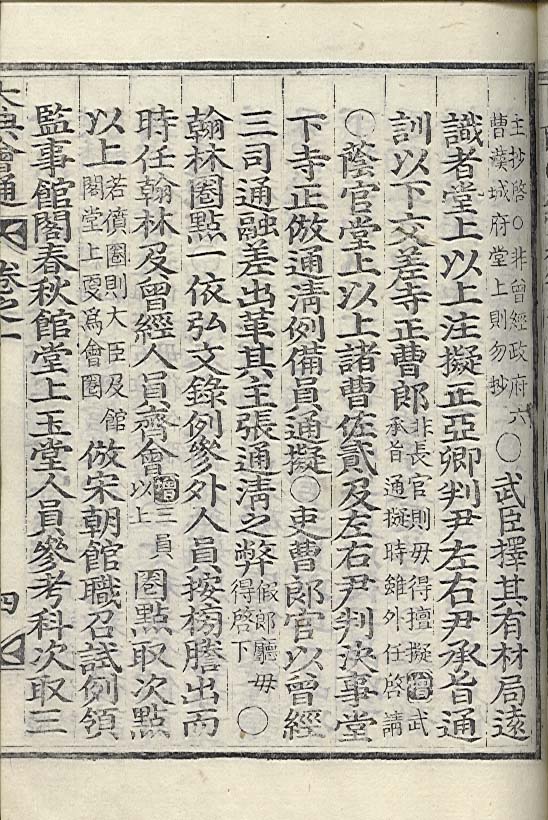 主抄啓○非曾經政府六
曹漢城府堂上則勿抄
○武臣擇其有材局遠
識者堂上以上注擬正亞卿判尹左右尹承旨通
訓以下交差寺正曹郎
非長官則毋得擅擬增武
承旨通擬時雖外任啓請
○蔭官堂上以上諸曹佐貳及左右尹判決事堂
下寺正倣通淸例備員通擬○吏曹郎官以曾經
三司通融差出革其主張通淸之弊
假郎廳毋
得啓下
○
翰林圈點一依弘文錄例參外人員按榜謄出而
時任翰林及曾經人員齊會
增三員
以上
圈點取次點
以上
若儐圈則大臣及館
閣堂上更爲會圈
倣宋朝館職召試例領
監事館閣春秋館堂上玉堂人員參考科次取三
大典會通 卷之一 四